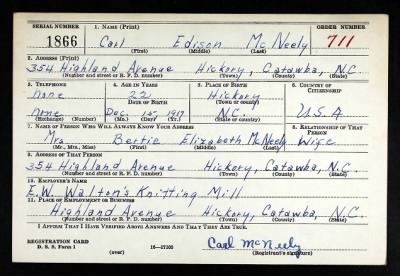 SERIAL NUMBER 1. NAME (Print) ORDER NUMBER
1866 Carl Edison McNeely 711
(First) (Middle) (Last)
2. ADDRESS (Print)
354 Highland Avenue Hickory, Catawba, N.C.
(Number and street or R. F. D. number) (Town) (County) (State)
3. TELEPHONE 4. AGE IN YEARS 5. PLACE OF BIRTH 6. COUNTRY OF CITIZENSHIP
None 22 Hickory
DATE OF BIRTH (Town or county)
None Dec. 1st 1917 N.C. U.S.A
(Exchange) (Number) (Mo.) (Day) (Yr.) (State or country)
7. NAME OF PERSON WHO WILL ALWAYS KNOW YOUR ADDRESS 8. RELATIONSHIP OF THAT PERSON
Mrs Bertie Elizabeth McNeely Wife
(Mr., Mrs., Miss) (First) (Middle) (Last)
9. ADDRESS OF THAT PERSON
354 Highland Avenue Hickory, Catawba, N.C.
(Number and street or R. F. D. number) (Town) (County) (State)
10. EMPLOYER'S NAME
E.W. Walton's Knitting Mill
11. PLACE OF EMPLOYMENT OR BUSINESS
Highland Avenue Hickory, Catawba, N.C.
(Number and street or R. F. D. number) (Town) (County) (State)
I AFFIRM THAT I HAVE VERIFIED ABOVE ANSWERS AND THAT THEY ARE TRUE.
REGISTRATION CARD
D. S. S. Form 1 (over) 16—17105 Carl McNeely
(Registrant's signature)